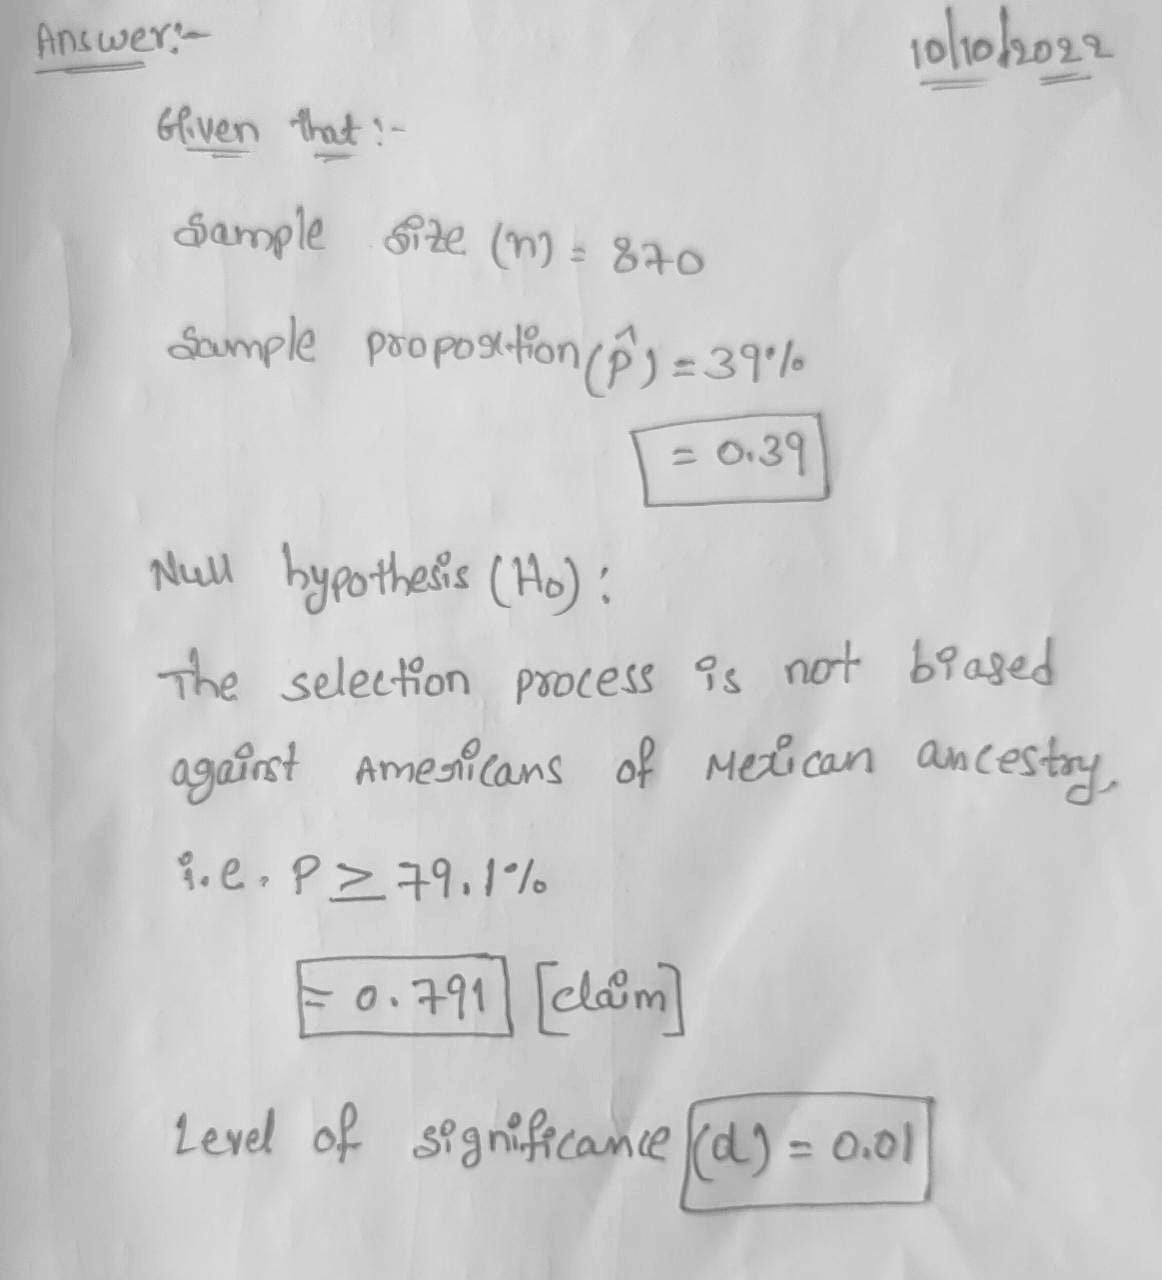 Answer:-
10/10/2022
Given that :-
Sample size (n) = 870
Sample proportion (p̂) = 39%
= 0.39
Null hypothesis (H0) :
The selection process is not biased
against Americans of Mexican ancestry.
i.e. P ≥ 79.1%
= 0.791 [claim]
Level of significance (α) = 0.01